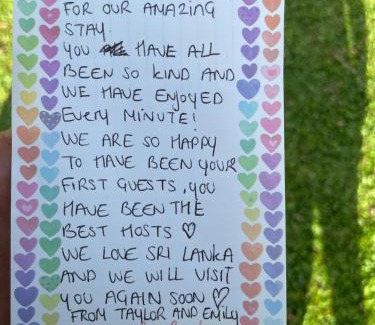 FOR OUR AMAZING
STAY.
YOU HAVE ALL
BEEN SO KIND AND
WE HAVE ENJOYED
EVERY MINUTE!
WE ARE SO HAPPY
TO HAVE BEEN YOUR
FIRST GUESTS, YOU
HAVE BEEN THE
BEST HOSTS ♡
WE LOVE SRI LANKA
AND WE WILL VISIT
YOU AGAIN SOON ♡
FROM TAYLOR AND EMILY